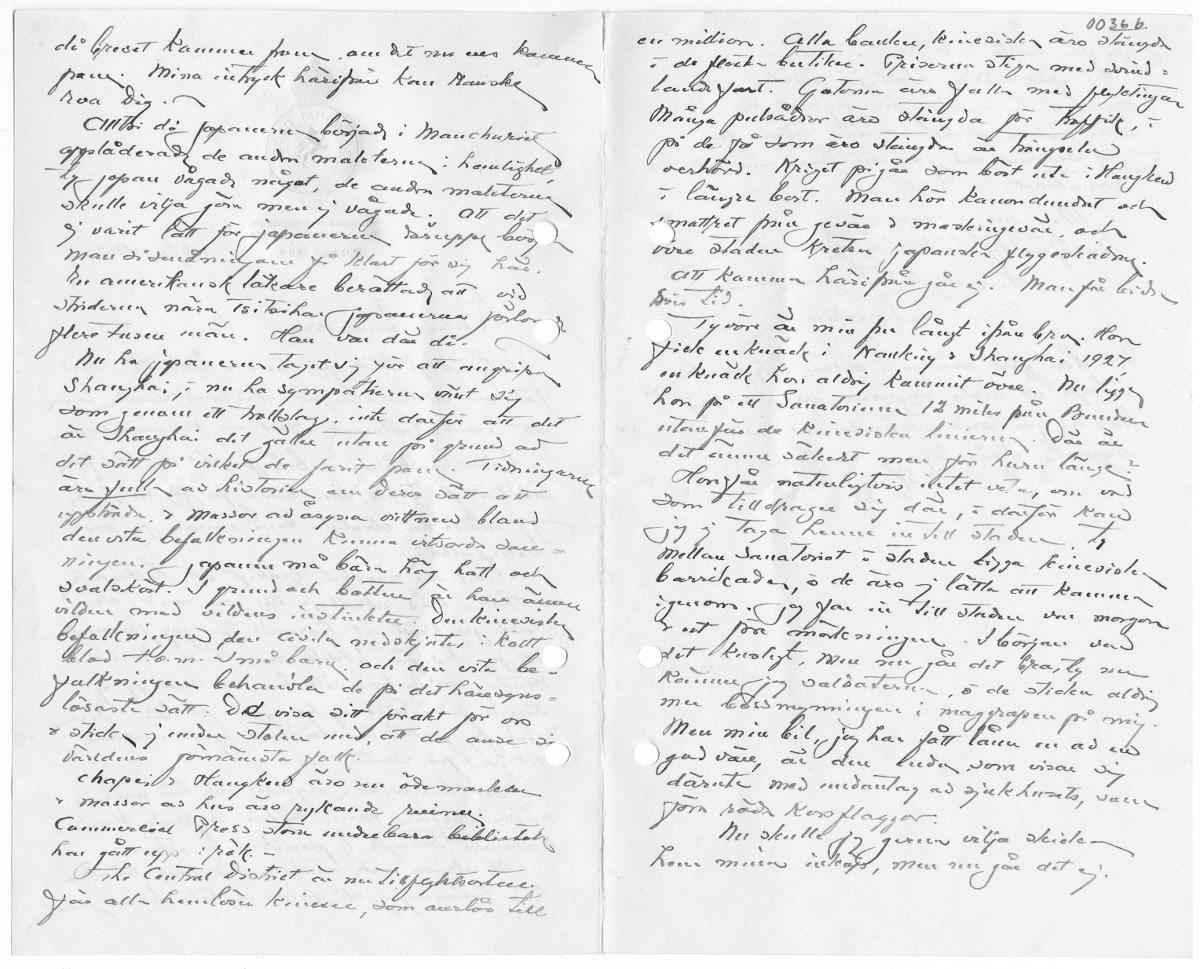 då brevet kommer fram, om det nu ens kommer
fram. Mina intryck härifrån kan kanske
roa Dig. –
Alltså då japanerna började i Manchuriet
applåderade de andra makterna i hemlighet,
ty japan vågade något, de andra makterna
skulle vilja göra men ej vågade. Att det
ej varit lätt för japanerna deruppe bör
man sismåningom få klart för sig här.
En amerikansk läkare berättade att vid
striderna nära Tsitsihar japanerna förlorade
flere tusen män. Han var där då.
Nu ha japanerna taget sig för att angripa
Shanghai, & nu ha sympatierna vänt sig
som genom ett trollslag, inte därför att det
är Shanghai det gäller utan på grund av
det sätt på vilket de farit fram. Tidningarna
äro fulla av historier om deras sätt att
uppträda & massor av åsyna vittnen bland
den vita befolkningen kunna vitsorda san-
ningen. Japanen må bära hög hatt och
svalskört. I grund och botten är han ännu
vilden med vildens instinkter. Den kinesiska
befolkningen den civila nedskjutes i kallt
blod t.o.m. små barn, och den vita be-
folkningen behandla de på det hänsyns-
lösaste sätt. De visa sitt förakt för oss
& sticka ej under stolen med, att de anse sig
världens förnämsta folk.
Chapei & Hongkew äro nu ödemarker
& massor av hus äro rykande ruiner.
Commercial Press stora underbara bibliotek
har gått upp i rök. –
The Central District är nu tillflyktsorten
för alla hemlösa kineser, som anslås till
0036 b
en million. Alla banker, kinesiska äro stängda
& de flesta butiker. Priserna stiga med svind-
lande fart. Gatorna äro fulla med flyktingar
Många pulsådror äro stängda för traffik, &
på de få som äro stängda är trängseln
oerhörd. Kriget pågår som bäst ute i Hongkew
& längre bort. Man hör kanondundret och
smattret från gevär & maskingevär, och
över staden kretsa japanska flygeskadrar.
Att komma härifrån går ej. Man får bida
sin tid.
Tyvärr är min fru långt ifrån bra. Hon
fick en knäck i Nanking & Shanghai 1927,
en knäck hon aldrig kommit över. Nu ligger
hon på ett Sanatorium 12 miles från Bunden
utanför de kinesiska linjerna. Där är
det ännu säkert men för huru länge?
Hon får naturligtvis intet veta, om vad
som tilldrager sig där, & därför kan
jag ej taga henne in till staden ty
mellan Sanatoriet & staden ligga kinesiska
barrikader, & de äro ej lätta att komma
igenom. Jag far in till staden var morgon
& ut före mörkningen. I början var
det kusligt, men nu går det bra, ty nu
känner jag soldaterna, & de sticka aldrig
mer bössmynningen i maggropen på mig.
Men min bil, jag har fått låna en av en
god vän, är den enda, som visar sig
därute med undantag av sjukhusets, som
föra röda korsflaggor.
Nu skulle jag gerna vilja skicka
hem mina inköp, men nu går det ej.